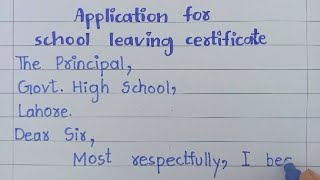 Application for
school leaving certificate
The Principal,
Govt. High School,
Lahore.
Dear Sir,
Most respectfully, I beg